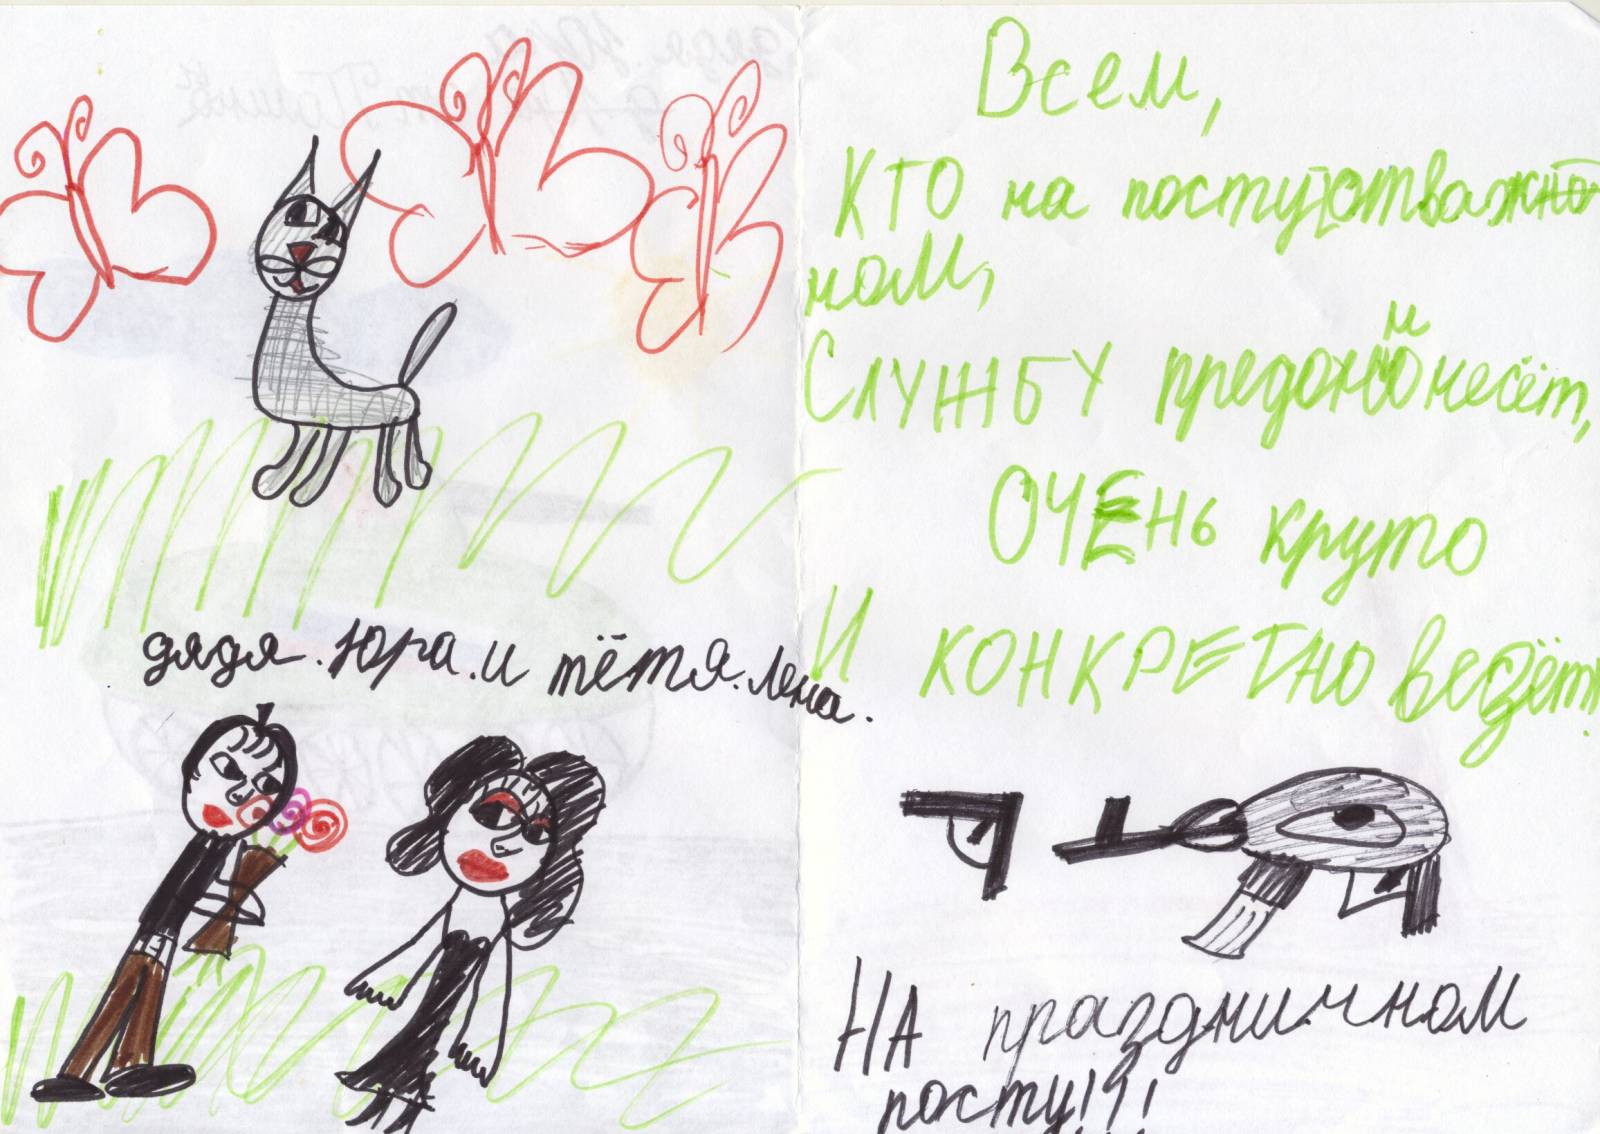 дядя. Юра. и тётя. Лена.
Всем,
Кто на посту отважно
ном,
Службу
несёт,
Очень круто
И конкретно везёт.
На праздничном
посту!!!